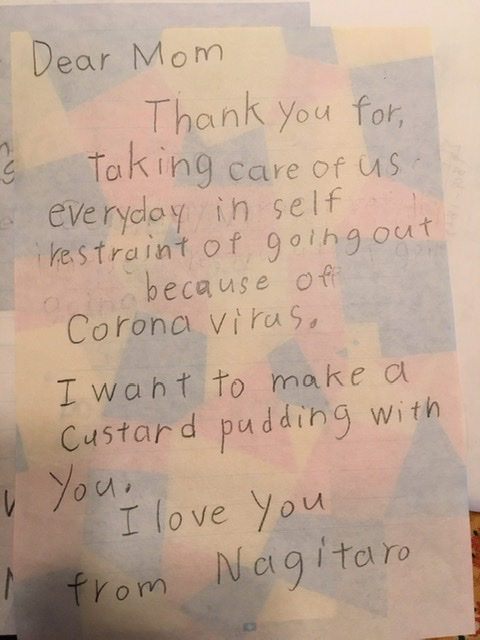 Dear Mom
Thank you for,
taking care of us
everyday in self
restraint of going out
because off
Corona virus.
I want to make a
custard pudding with
you.
I love you
from Nagitaro